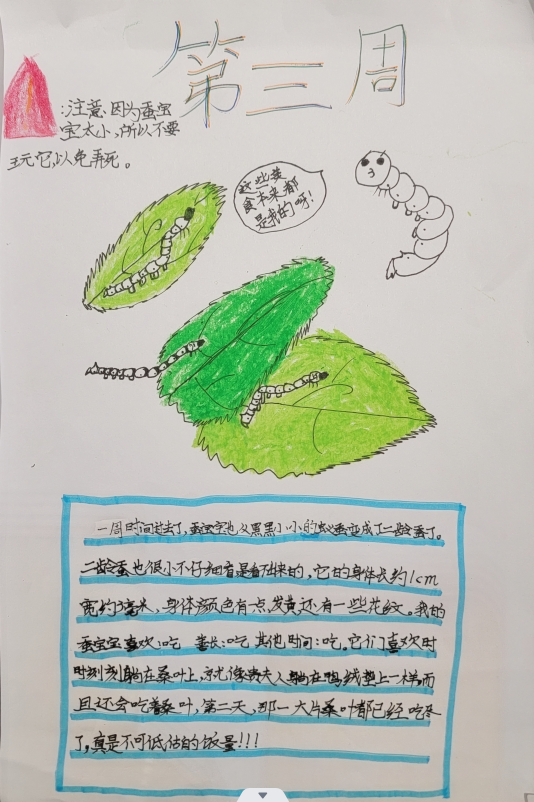 第三周
:注意:因为蚕宝
宝太小,所以不要
玩它,以免弄死。
这些美
食本来都
是我的呀!
一周时间过去了,蚕宝宝也从黑黑小小的蚁蚕变成了二龄蚕了。
二龄蚕也很小不仔细看是看不出来的,它的身体长约1cm
宽约3毫米,身体颜色有点发黄还有一些花纹。我的
蚕宝宝喜欢:吃 善长:吃 其他时间:吃。它们喜欢时
时刻刻躺在桑叶上,就像贵夫人躺在鸭绒垫上一样,而
且还会吃着桑叶,第二天,那一大片桑叶都已经吃尽
了,真是不可低估的饭量!!!